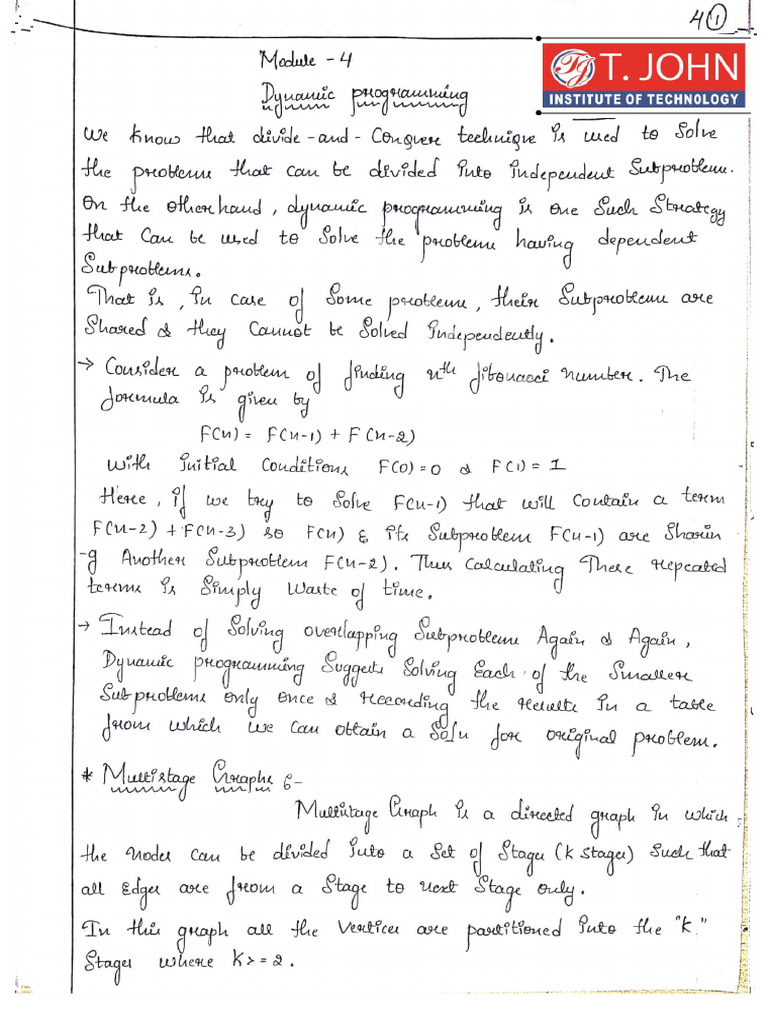 4 1
T. JOHN
INSTITUTE OF TECHNOLOGY
Module - 4
Dynamic programming
We know that divide-and-Conquer technique is used to solve
the problem that can be divided into independent Subproblem.
On the otherhand, dynamic programming is one Such Strategy
that Can be used to Solve the problem having dependent
Subproblems.
That is, in case of Some problem, their Subproblem are
Shared & they Cannot be Solved independently.
→ Consider a problem of finding nth fibonacci number. The
formula is given by
F(n) = F(n-1) + F(n-2)
with initial Conditions F(0)=0 & F(1)=1
Here, if we try to Solve F(n-1) that will contain a term
F(n-2) + F(n-3) so F(n) & its Subproblem F(n-1) are Sharin
-g Another Subproblem F(n-2). Thus Calculating These repeated
terms is Simply Waste of time.
→ Instead of Solving overlapping Subproblem Again & Again,
Dynamic programming Suggests Solving Each of the Smaller
Subproblems only once & recording the results in a table
from which we can obtain a Soln for original problem.
* Multistage Graphs :-
Multistage Graph is a directed graph in which
the nodes can be divided into a Set of Stages (K stages) Such that
all Edges are from a Stage to next Stage only.
In this graph all the vertices are partitioned into the "K"
Stages where K>=2.